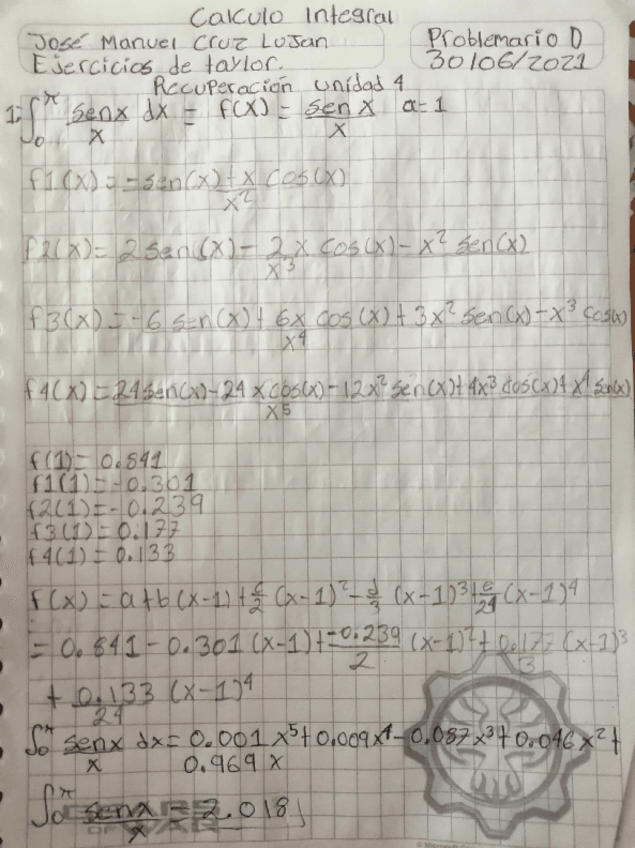 Calculo Integral
José Manuel Cruz Lujan Problemario D
Ejercicios de taylor. 30/06/2021
Recuperación unidad 4
1: ∫₀^π senx/x dx = f(x) = sen x/x a=1
f1(x) = -sen(x)+x cos(x)/x²
f2(x) = 2 sen(x) - 2x cos(x) - x² sen(x)/x³
f3(x) = -6 sen(x) + 6x cos(x) + 3x² sen(x) - x³ cos(x)/x⁴
f4(x) = 24 sen(x) - 24 x cos(x) - 12x² sen(x) + 4x³ cos(x) + x⁴ sen(x)/x⁵
f(1) = 0.841
f1(1) = -0.301
f2(1) = -0.239
f3(1) = 0.177
f4(1) = 0.133
f(x) = a+b(x-1) + c/2 (x-1)² - d/3 (x-1)³ + e/24 (x-1)⁴
= 0.841 - 0.301 (x-1) + -0.239/2 (x-1)² + 0.177/3 (x-1)³
+ 0.133/24 (x-1)⁴
∫₀^π senx/x dx = 0.001x⁵ + 0.009x⁴ - 0.087x³ + 0.046x² +
0.969 x
∫₀^π senx/x = 2.018